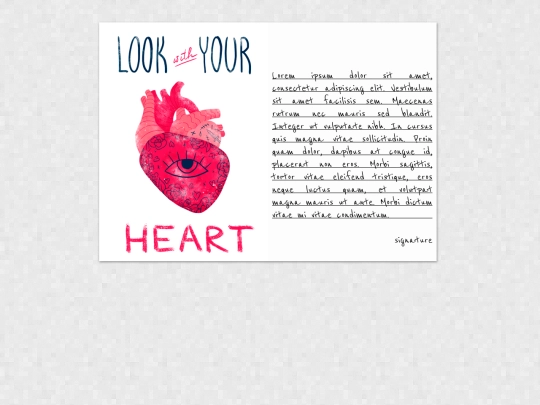 LOOK with YOUR
HEART
Lorem ipsum dolor sit amet,
consectetur adipiscing elit. Vestibulum
sit amet facilisis sem. Maecenas
rutrum nec mauris sed blandit.
Integer ut vulputate nibh. In cursus
quis magna vitae sollicitudin. Proin
quam dolor, dapibus at congue id,
placerat non eros. Morbi sagittis,
tortor vitae eleifend tristique, eros
neque luctus quam, et volutpat
magna mauris ut ante. Morbi dictum
vitae mi vitae condimentum.
signature